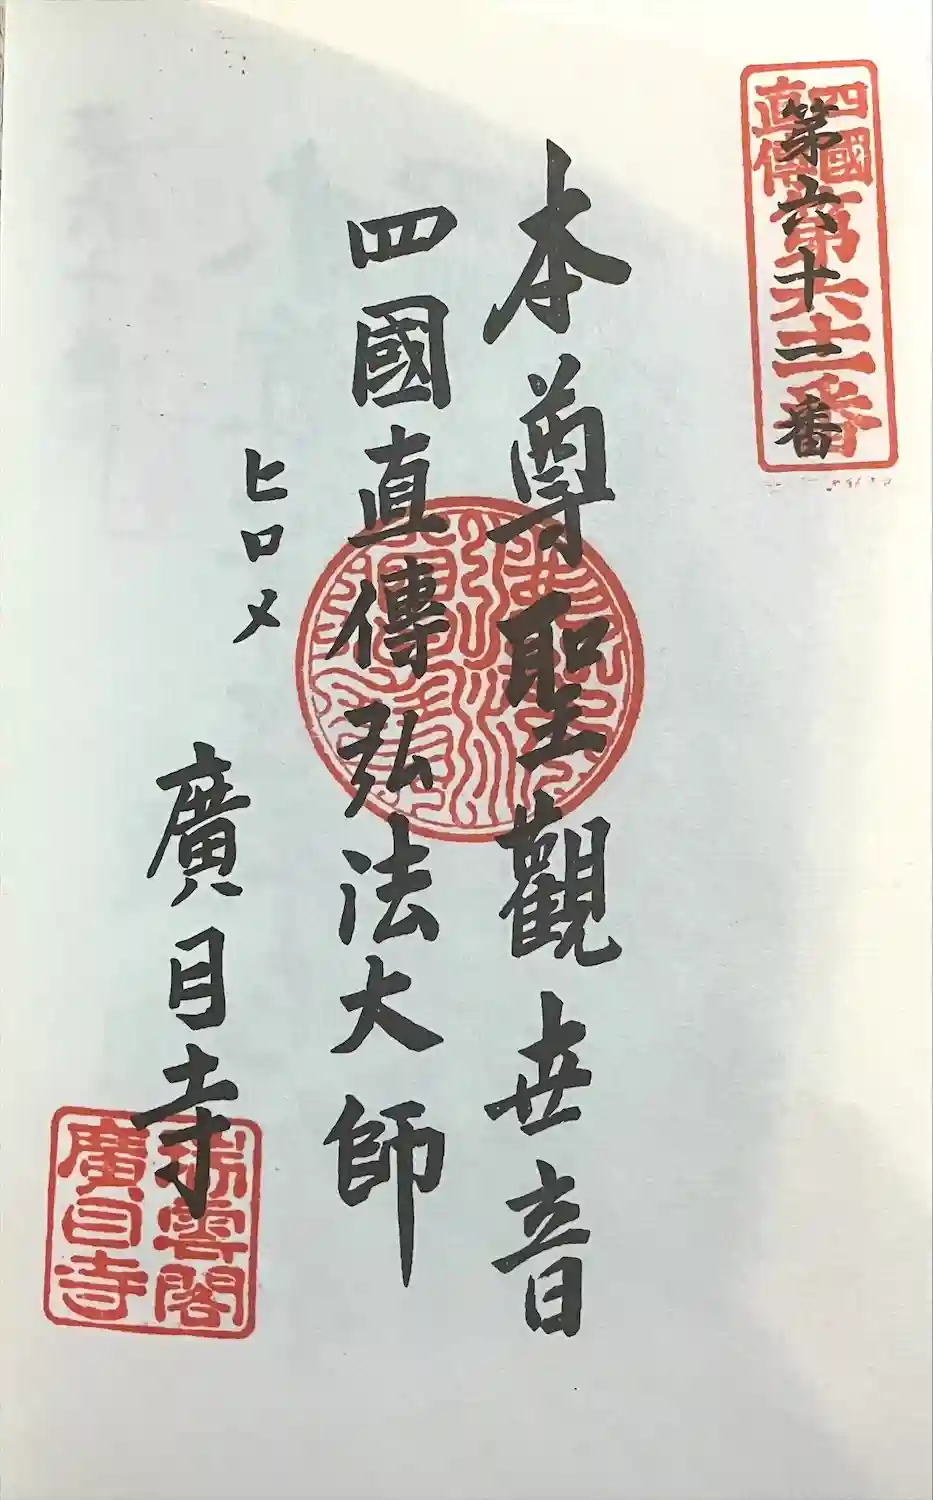 四國
直傳
第六十二番
第六十一番
本尊聖觀世音
四國直傳弘法大師
ヒロメ
廣目寺
瑞雲閣
廣目寺